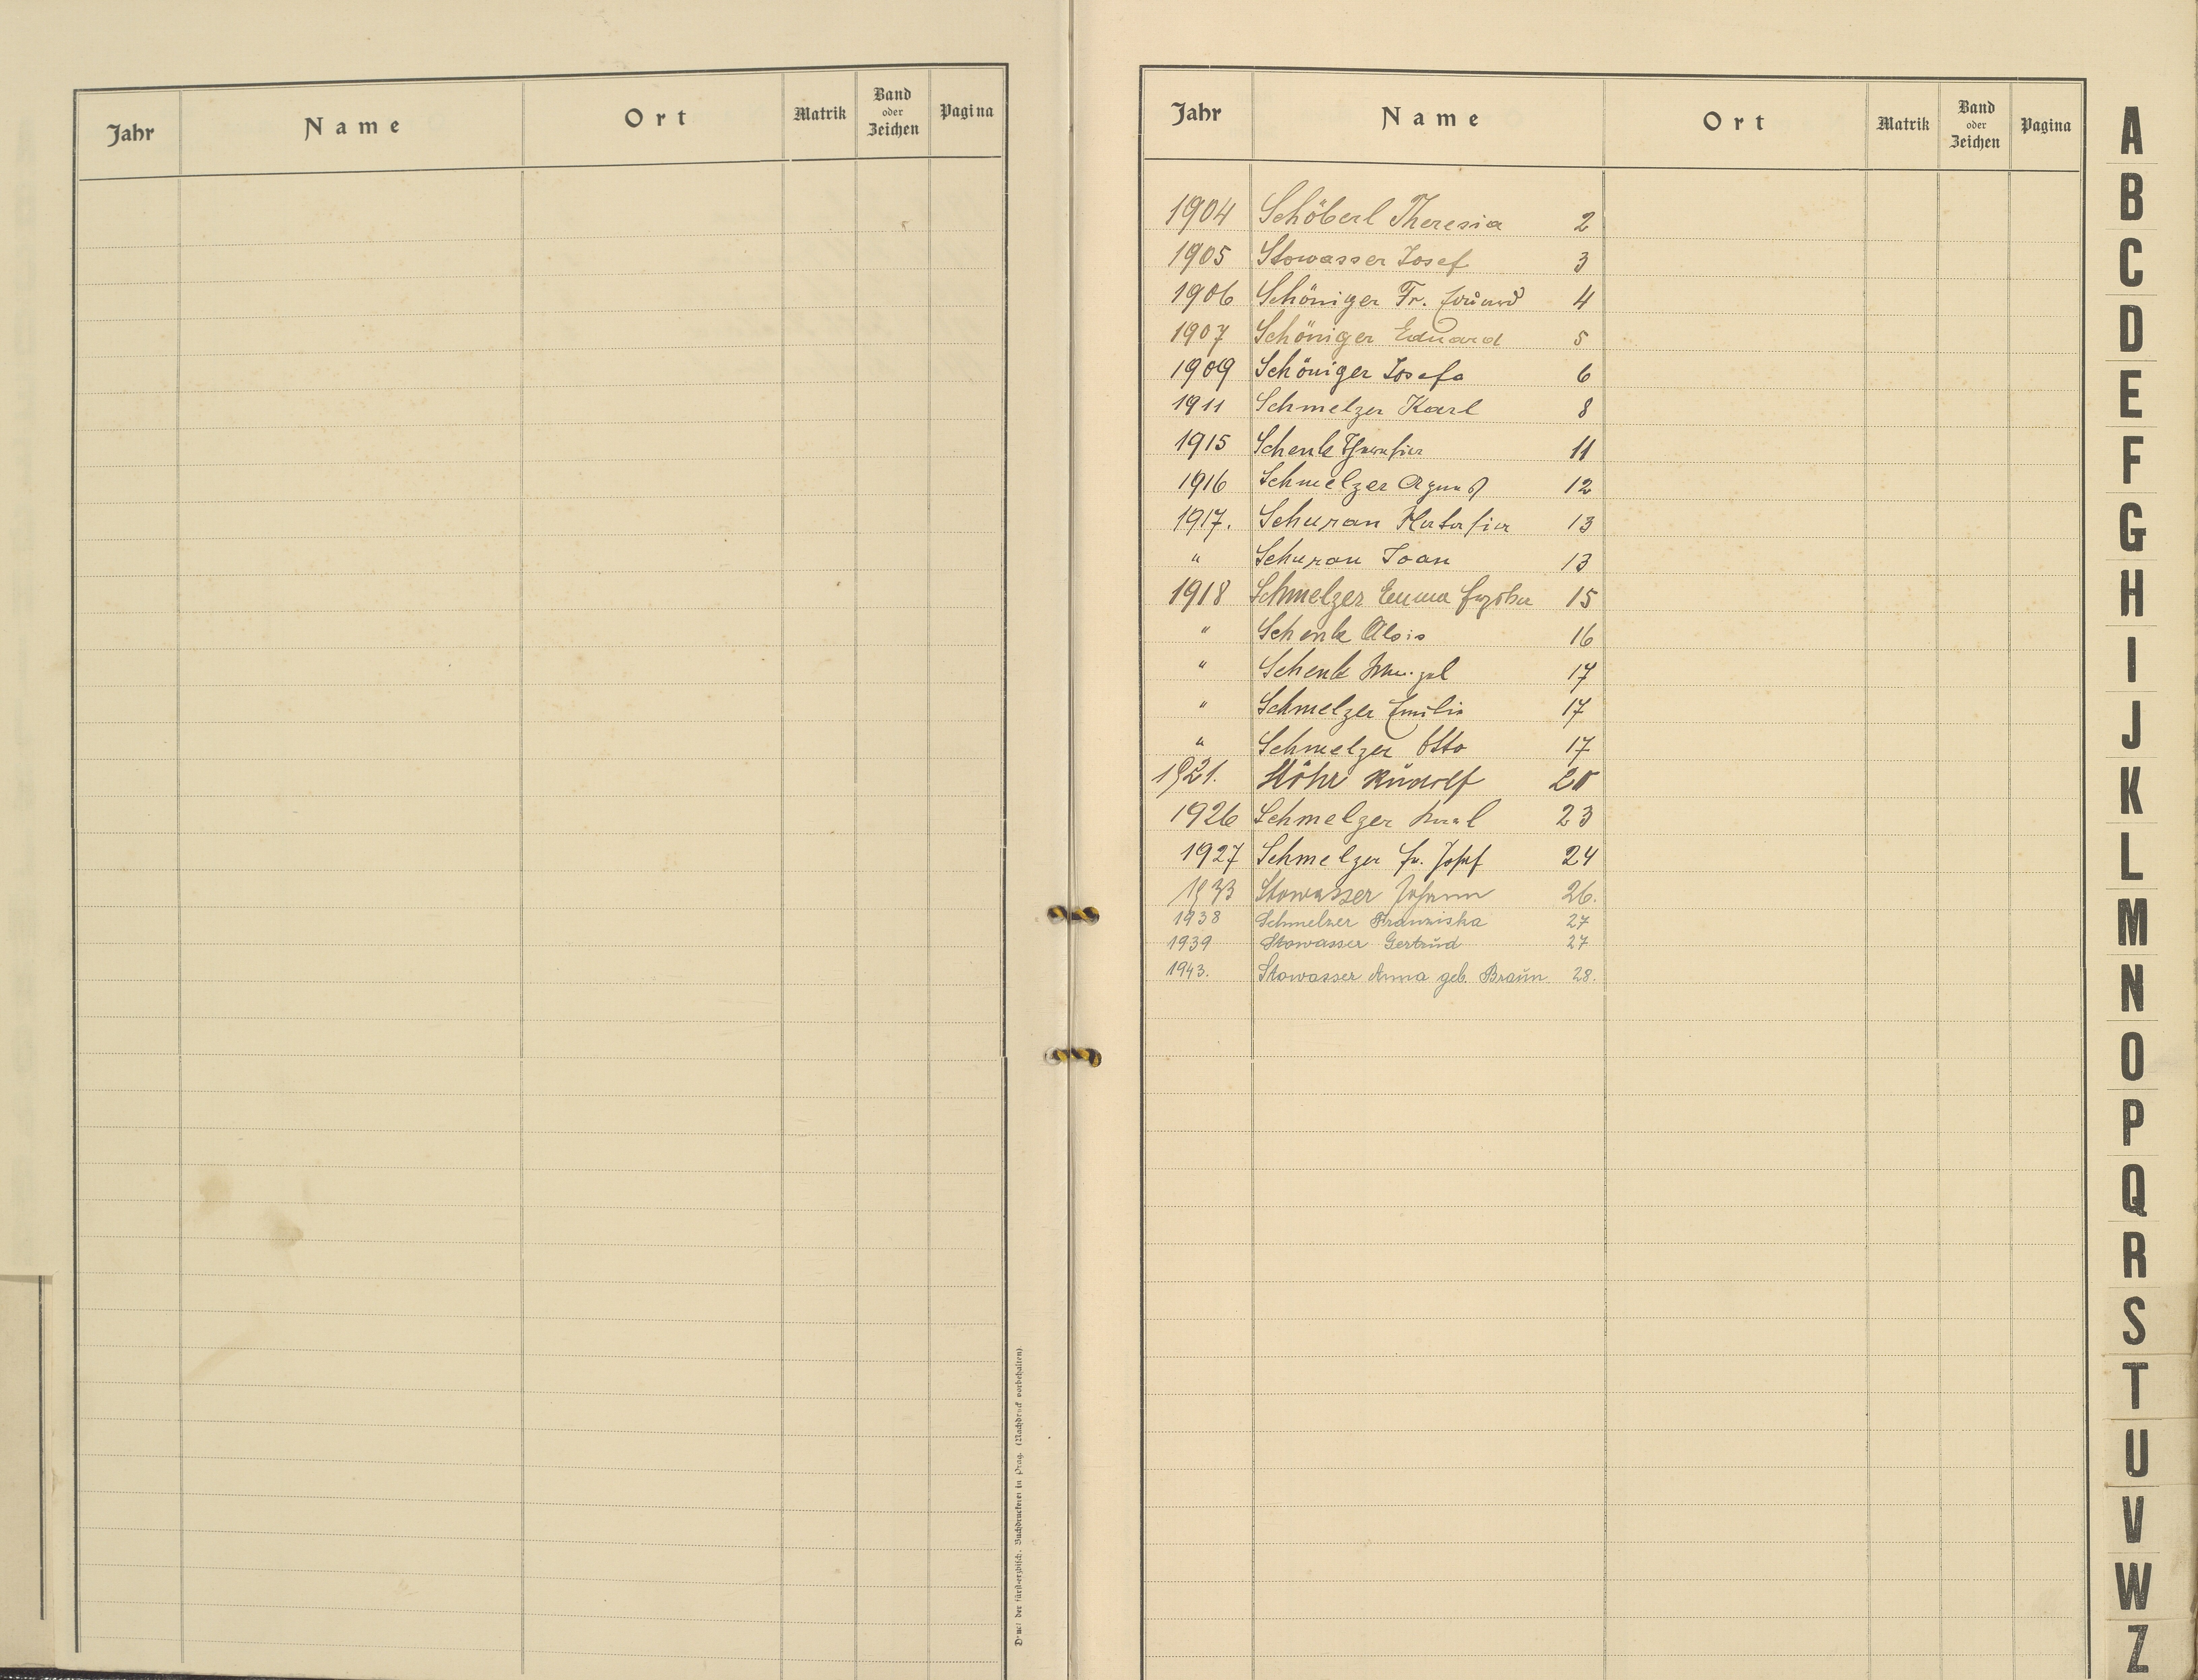 Jahr Name Ort Matrik Band oder Zeichen Pagina
Druck der fürsterzbisch. Buchdruckerei in Prag. (Nachdruck vorbehalten).
Jahr Name Ort Matrik Band oder Zeichen Pagina
1904 Schöberl Theresia 2
1905 Stowasser Josef 3
1906 Schöniger Fr. Eduard 4
1907 Schöniger Eduard 5
1909 Schöniger Josefa 6
1911 Schmelzer Karl 8
1915 Schenk Theresia 11
1916 Schmelzer August 12
1917. Schuran 13
" Schuran Joan 13
1918 Schmelzer Emma 15
" Schenk Alois 16
" Schenk 17
" Schmelzer Emilie 17
" Schmelzer Otto 17
1921. Stöhr Rudolf 20
1926 Schmelzer Karl 23
1927 Schmelzer Fr. Josef 24
1933 Stowasser Johann 26.
1938 Schmelzer Franziska 27
1939 Stowasser Gertrud 27
1943. Stowasser Anna geb. Braun 28.
A
B
C
D
E
F
G
H
I
J
K
L
M
N
O
P
Q
R
S
T
U
V
W
Z